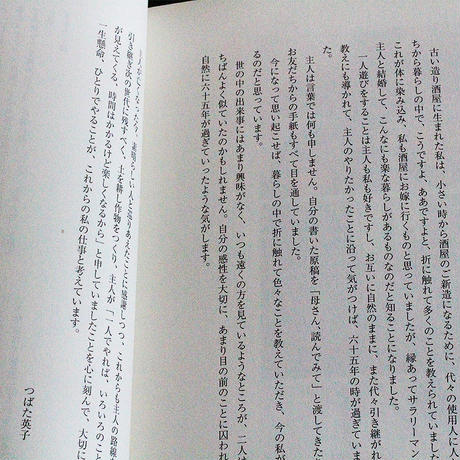 古い造り酒屋に生まれた私は、小さい時から酒屋のご新造になるために、代々の使用人に人
ちから暮らしの中で、こうですよ、ああですよと、折に触れて多くのことを教えられました。
これが体に染み込み、私も酒屋にお嫁に行くものと思っていましたが、縁あってサラリーマン
主人と結婚して、こんなにも楽な暮らしがあるものなのだと知ることになりました。
一人遊びをすることは主人も私も好きですし、お互いに自然のままに、また代々引き継がれ
教えにも導かれて、主人のやりたかったことに沿って気がつけば、六十五年の時が過ぎていま
た。
主人は言葉では何も申しません。自分の書いた原稿を「母さん、読んでみて」と渡してきた
お友だちからの手紙もすべて目を通していました。
今になって思い起こせば、暮らしの中で折に触れて色々なことを教えていただき、今の私が
るのだと思っています。
世の中の出来事にはあまり興味がなく、いつも遠くの方を見ているようなところが、二人は
ちばんよく似ていたのかもしれません。自分の感性を大切に、あまり目の前のことに囚われ
自然に六十五年が過ぎていったような気がします。
主人が亡くなった今、素晴らしい人と巡りあえたことに感謝しつつ、これからも主人の路線
引き継ぎ次の世代に残すべく、土を耕し作物をつくり、主人が「一人でやれば、いろいろのこと
が見えてくる、時間はかかるけど楽しくなるから」と申していましたことを心に刻んで、大切に
一生懸命、ひとりでやることが、これからの私の仕事と考えています。
つばた英子